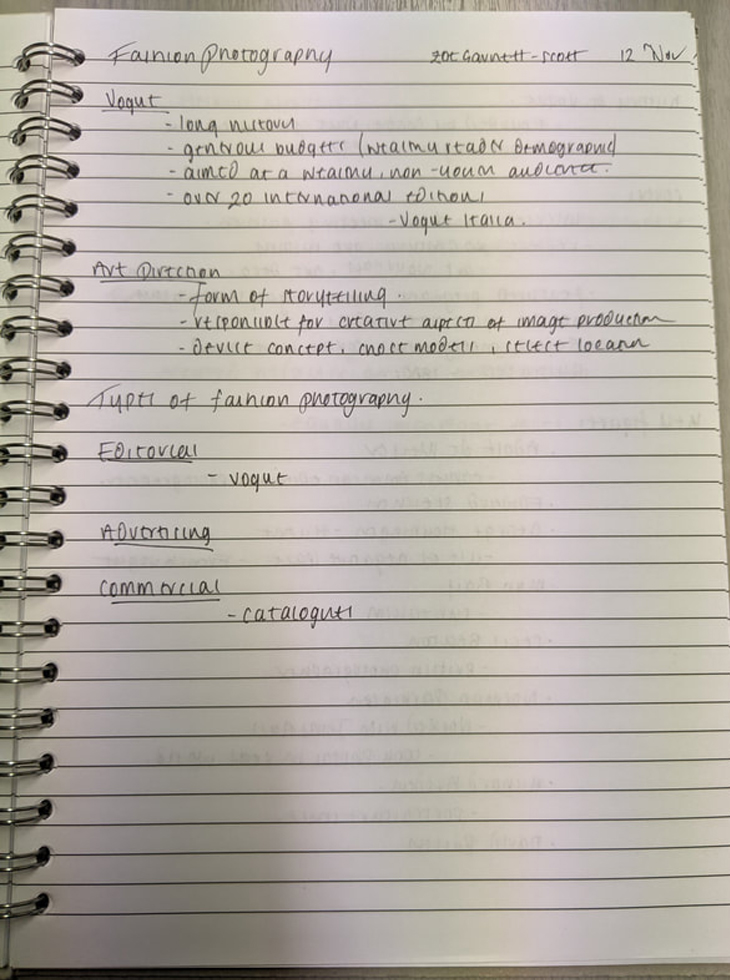 Fashion photography Zoe Gauntt-Scott 12 Nov
Vogue
- long history
- generous budgets (wealthy reader demographic)
- aimed at a wealthy, non-young audience.
- over 20 international editions
- Vogue Italia.
Art Direction
- form of storytelling.
- responsible for creative aspects of image production
- devise concept, choose models, select location
Types of fashion photography.
Editorial
- vogue
Advertising
Commercial
- catalogues